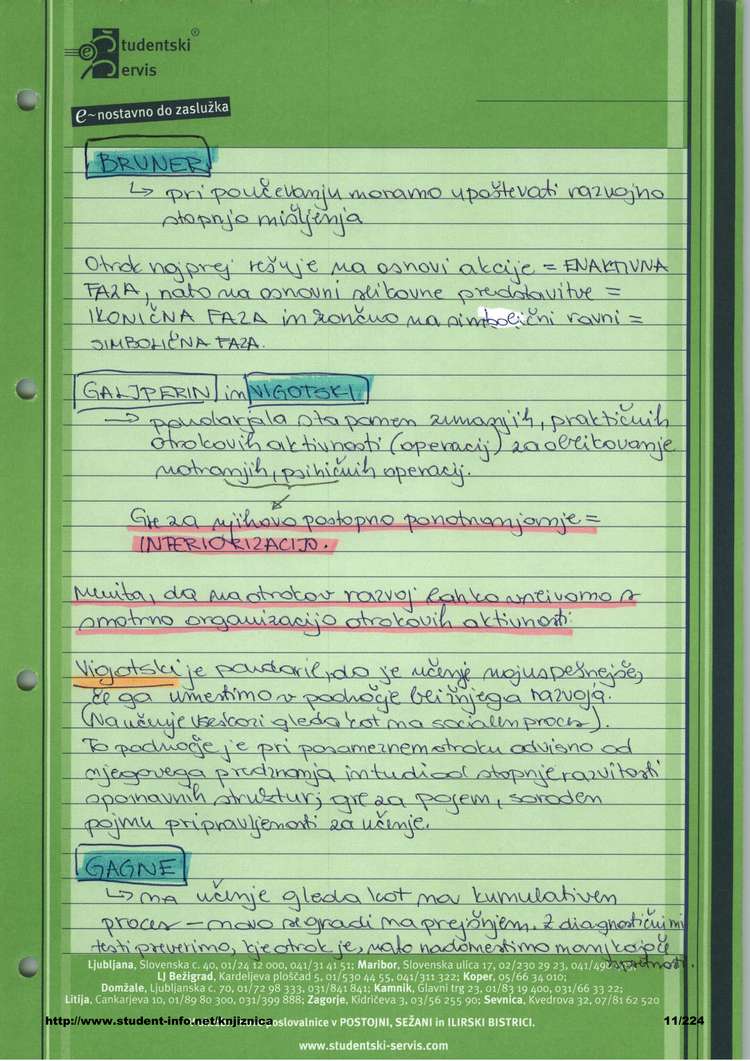 Študentski®
Servis
e~nostavno do zaslužka
BRUNER
↳ pri poučevanju moramo upoštevati razvojno
stopnjo mišljenja
Otrok najprej rešuje na osnovi akcije = ENAKTIVNA
FAZA, nato na osnovni slikovne predstavitve =
IKONIČNA FAZA in končno na simbolični ravni =
SIMBOLIČNA FAZA.
GALJPERIN in VIGOTSKI
→ poudarjala sta pomen zunanjih, praktičnih
otrokovih aktivnosti (operacij) za oblikovanje
notranjih, psihičnih operacij.
Gre za njihovo postopno ponotranjanje =
INTERIORIZACIJO.
Menita, da na otrokov razvoj lahko vplivamo s
smotrno organizacijo otrokovih aktivnosti.
Vigotski je poudaril, da je učenje najuspešnejše,
če ga umestimo v področje bližnjega razvoja.
(Na učenje vseskozi gleda kot na socialen proces).
To področje je pri posameznem otroku odvisno od
njegovega predznanja in tudi od stopnje razvitosti
spoznavnih struktur; gre za pojem, soroden
pojmu pripravljenosti za učenje.
GAGNE
↳ na učenje gleda kot na kumulativen
proces – novo se gradi na prejšnjem. Z diagnostičnimi
testi preverimo, kje otrok je, nato nadomestimo manjkajoče
spretnosti.
Ljubljana, Slovenska c. 40, 01/24 12 000, 041/31 41 51; Maribor, Slovenska ulica 17, 02/230 29 23, 041/49
LJ Bežigrad, Kardeljeva ploščad 5, 01/530 44 55, 041/311 322; Koper, 05/66 34 010;
Domžale, Ljubljanska c. 70, 01/72 98 333, 031/841 841; Kamnik, Glavni trg 23, 01/83 19 400, 031/66 33 22;
Litija, Cankarjeva 10, 01/89 80 300, 031/399 888; Zagorje, Kidričeva 3, 03/56 255 90; Sevnica, Kvedrova 32, 07/81 62 520
http://www.student-info.net/knjiznica poslovalnice v POSTOJNI, SEŽANI in ILIRSKI BISTRICI. 11/224
www.studentski-servis.com